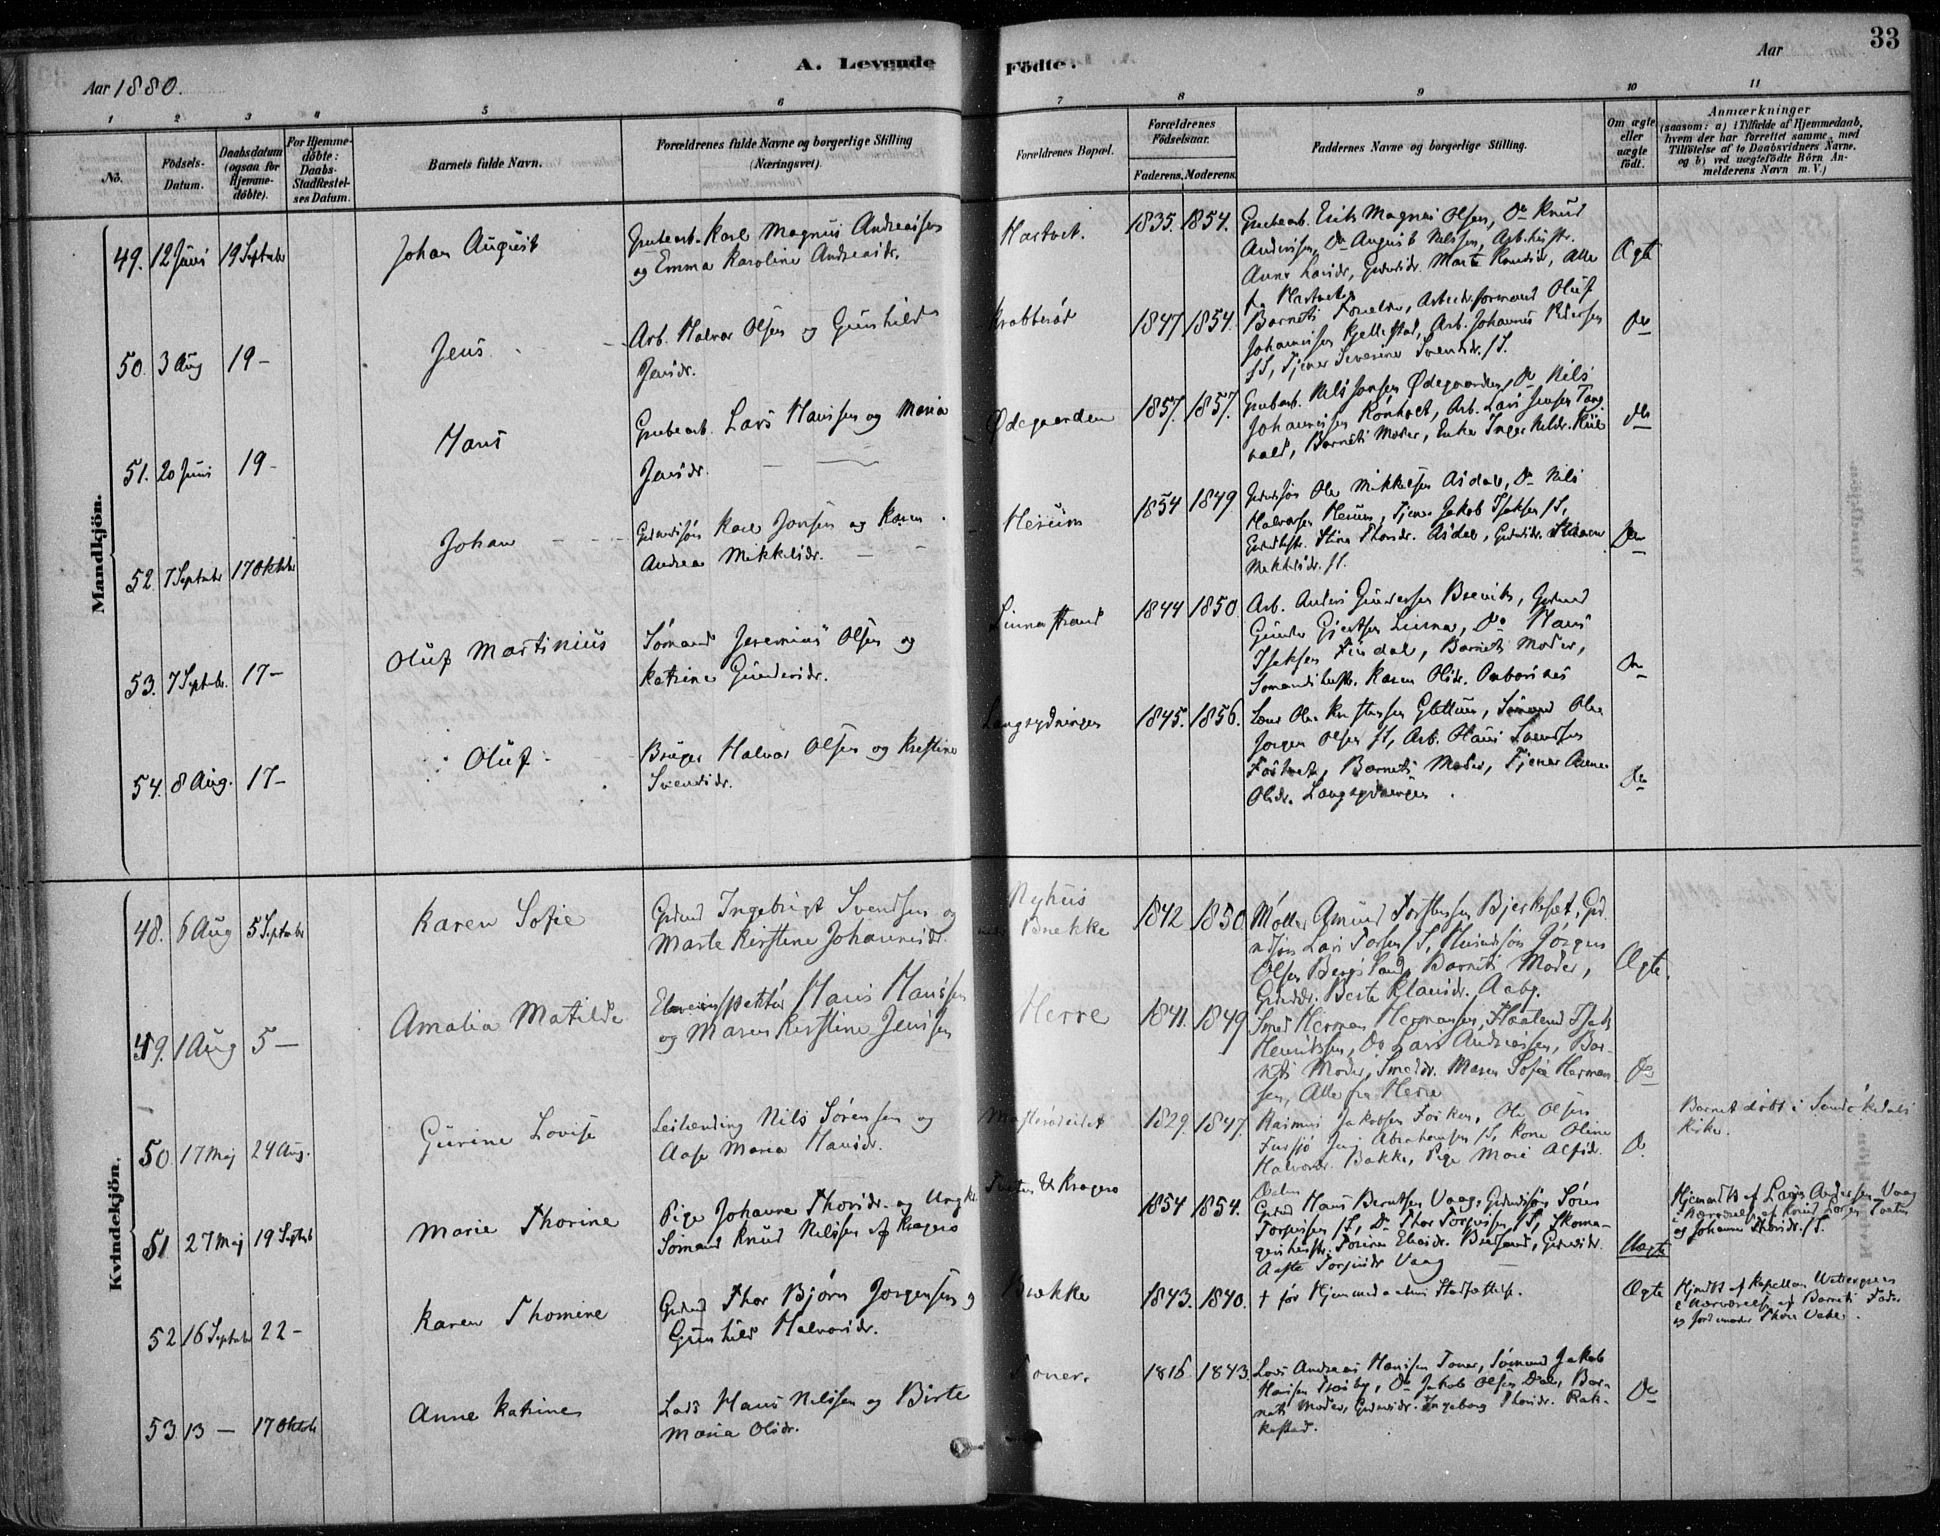 33
A. Levende Födte.
Aar 1880.
Aar
1 2 3 4 5 6 7 8 9 10 11
No.
Födsels-Datum.
Daabsdatum (ogsaa for Hjemme-döbte).
For Hjemme-döbte: Daabs-Stadfæstel-ses Datum.
Barnets fulde Navn.
Forældrenes fulde Navne og borgerlige Stilling (Næringsvei).
Forældrenes Bopæl.
Forældrenes Födselsaar.
Faderens. Moderens.
Faddernes Navne og borgerlige Stilling.
Om ægte eller uægte födt.
Anmærkninger
(saasom: a) i Tilfælde af Hjemmedaab, hvem der har forrettet samme, med Tilföielse af to Daabsvidners Navne, og b) ved uægtefödte Börn An-melderens Navn m. V.)
Mandkjön.
49. 12 Juni 19 Septbr
Johan August
Grubearb. Karl Magnus Andreassen
og Emma Karoline Andreasdr.
Hastvet.
1835. 1854.
Grubearb. Erik Magnus Olsen, Do Knud
Andersen, Do August Nilssen, Arb.hustr.
Anne Larsdr, Grdmdr. Marte Knudsdr, Alle
fra Hastvet
Ægte
50. 3 Aug 19 -
Jens
Arb. Halvor Olsen og Gunhild
Jensdr.
Krabberød
1847 1854.
Barnets Forældre, Arbeidsformand Oluf
Johannessen Kjellestad, Arb. Johannes Pedersen
sS, Tjener Severine Svendsdr. sS.
Do
51. 20 Juni 19 -
Hans
Grubearb. Lars Hanssen og Maria
Jensdr.
Ødegaarden
1857. 1857.
Grubearb. Nils Jonsen Ødegaarden, Do Nils
Johannessen Rønholt, Arb. Lars Jensen Tang-
vald, Barnets Moder, Enke Inger
Do
52. 7 Septbr 17 Oktbr
Johan
Grdmdsøn Karl Jonsen og Karen
Andrea Mikkelsdr.
Herum
1854 1849
Grdmdsøn Ole Mikkelsen Asdal, Do Nils
Halvorsen Herum, Tjener Jakob Isaksen sS,
Grdmdhustr. Stine Thorsdr. Asdal, Grdmdsdr.
Mikkelsdr. sS.
Do
53. 7 Septbr. 17 -
Oluf Martinius
Sømand Jeremias Olsen og
Katrine Gundersdr.
Linnastrand
1844 1850
Arb. Anders Gundersen Brevik, Grdmd
Gunder Gjertsen Linna, Do Hans
Isaksen Findal, Barnets Moder,
Sømandshustr. Karen Olsdr.
Do
54. 8 Aug. 17 -
Oluf
Bruger Halvor Olsen og Kristine
Svendsdr.
Langrydningen
1845. 1856.
Ole Kristensen, Sømand Ole
Jørgen Olsen sS, Arb. Hans Svendsen
Fostvet, Barnets Moder, Tjener Anne
Olsdr. Langrydningen
Do
Kvindekjön.
48. 6 Aug 5 Septbr
Karen Sofie
Grdmd Ingebrigt Svendsen og
Marte Kirstine Johannesdr.
Nyhus
Brekke
1842 1850
Møller Amund Torstensen Bjerkeset, Grd-
mdsøn Lars Torsen sS, Husmdsøn Jørgen
Olsen Bergsland, Barnets Moder,
Grdmdsdr. Berte Klausdr. Aaby.
Ægte.
49. 1 Aug 5 -
Amalia Matilde
Hans Hanssen
og Maren Kirstine Jenssen
Herre
1841. 1849
Smed Herman Hermansen, Isak
Henriksen, Do Lars Andreassen, Bar-
nets Moder, Smeddr. Maren Sofie Herman-
sen, Alle fra Herre
Do
50 17 Maj 24 Aug.
Gurine Lovise
Leilænding Nils Sørensen og
Aase Maria Hansdr.
1829. 1847.
Rasmus Jakobsen, Ole Olsen
Abrahamsen sS, Kone Oline
Halvorsdr. Bakke, Pige
Do
Barnet døbt i Søndökedals
Kirke.
51 27 Maj 19 Septbr
Marie Thorine
Pige Johanne Thorsdr. og Ungk.
Sømand Knud Nilssen af Kragerø
& Kragerø
1854 1854.
Grdmd Hans Berntsen Vaag, Grdmdsøn Søren
Torgersen sS, Do Thor Torgersen sS, Skoma-
gerhustr. Torine Eliasdr., Grdmdsdr.
Vaag
Uægte
Hjemdøbt af Lars Andersen Vaag
i Nærværelse af Knud
og Johanne Thorsdr. sS.
52 16 Septbr 22 -
Karen Thomine
Grdmd Thor Bjørn Jørgensen og
Gunhild Halvorsdr.
Brekke
1843. 1840.
† før Hjemmedaabens Stadfæstelse.
Ægte
Hjmdøbt af Kapellan Wettergreen
i Nærværelse af Barnets Fader
og Jordemoder
53 13 - 17 Oktbr
Anne Katrine
Lods Hans Nilssen og Birte
Maria Olsdr.
Toner.
1816 1843.
Lods Andreas Hanssen Toner, Sømand Jakob
Hansen, Do Jakob Olsen Dal, Bar-
nets Moder, Grdmdsdr. Ingeborg Thorsdr. Rak-
kestad.
Do